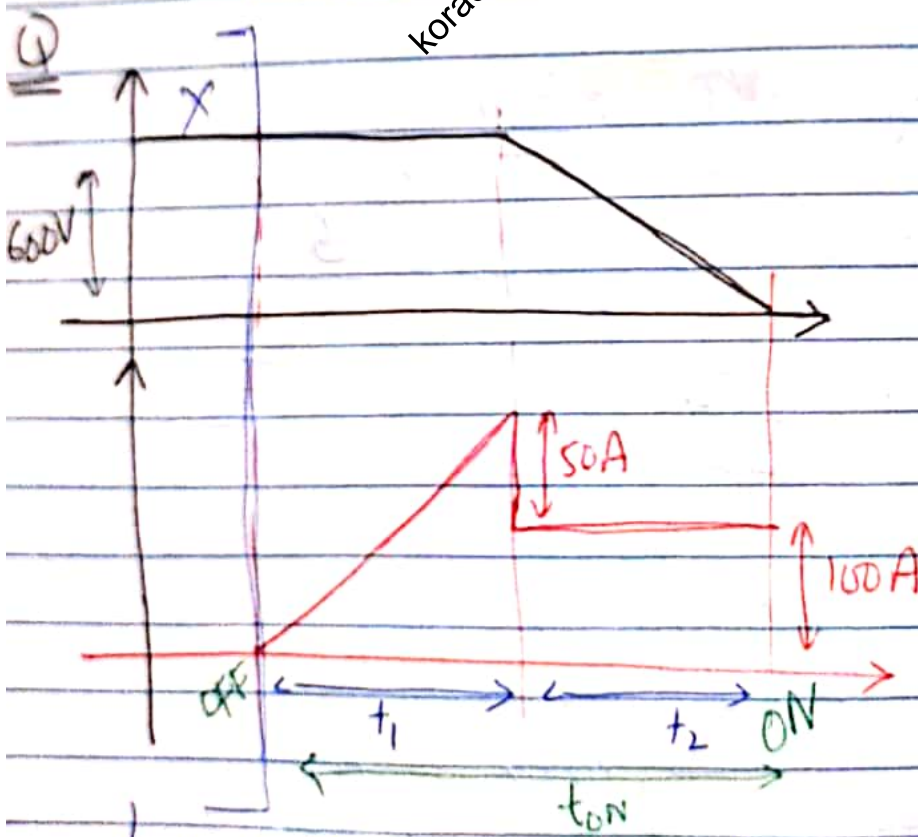 Q
kora
X
600V
50A
100A
OFF
t1
t2
ON
tON